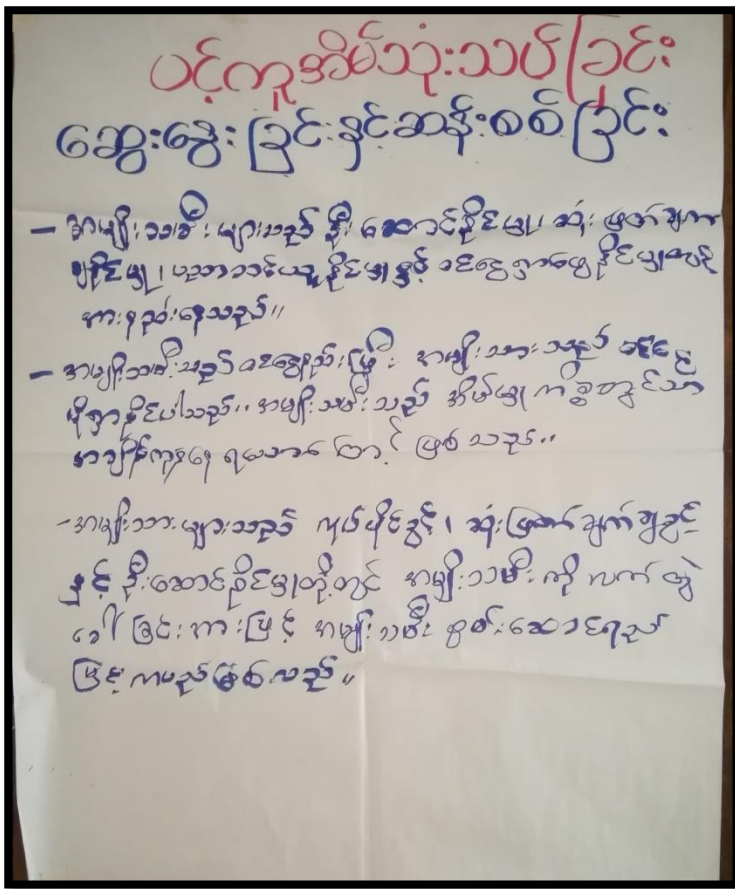 ပင့်ကူအိမ်သုံးသပ်ခြင်း
ဆွေးနွေးခြင်းနှင့်ဆန်းစစ်ခြင်း
- အမျိုးသမီးများသည် ဦးဆောင်နိုင်မှု၊ ဆုံးဖြတ်ချက်
ချနိုင်မှု၊ ပညာသင်ယူနိုင်မှုနှင့် ဝင်ငွေရှာဖွေနိုင်မှုတွင်
အားနည်းနေသည်။
- အမျိုးသမီးသည် ဝင်ငွေနည်းပြီး အမျိုးသားသည် ဝင်ငွေ
ပိုရှာနိုင်ပါသည်။ အမျိုးသမီးသည် အိမ်မှုကိစ္စတွင်သာ
အချိန်ကုန်နေ ရသောကြောင့် ဖြစ်သည်။
- အမျိုးသားများသည် ကုပ်ပိုင်ခွင့်၊ ဆုံးဖြတ်ချက်ချခွင့်
နှင့် ဦးဆောင်နိုင်မှုတို့တွင် အမျိုးသမီးကို လက်တွဲ
ခေါ်ခြင်းအားဖြင့် အမျိုးသမီး စွမ်းဆောင်ရည်
မြင့်ကမည်ဖြစ်သည်။